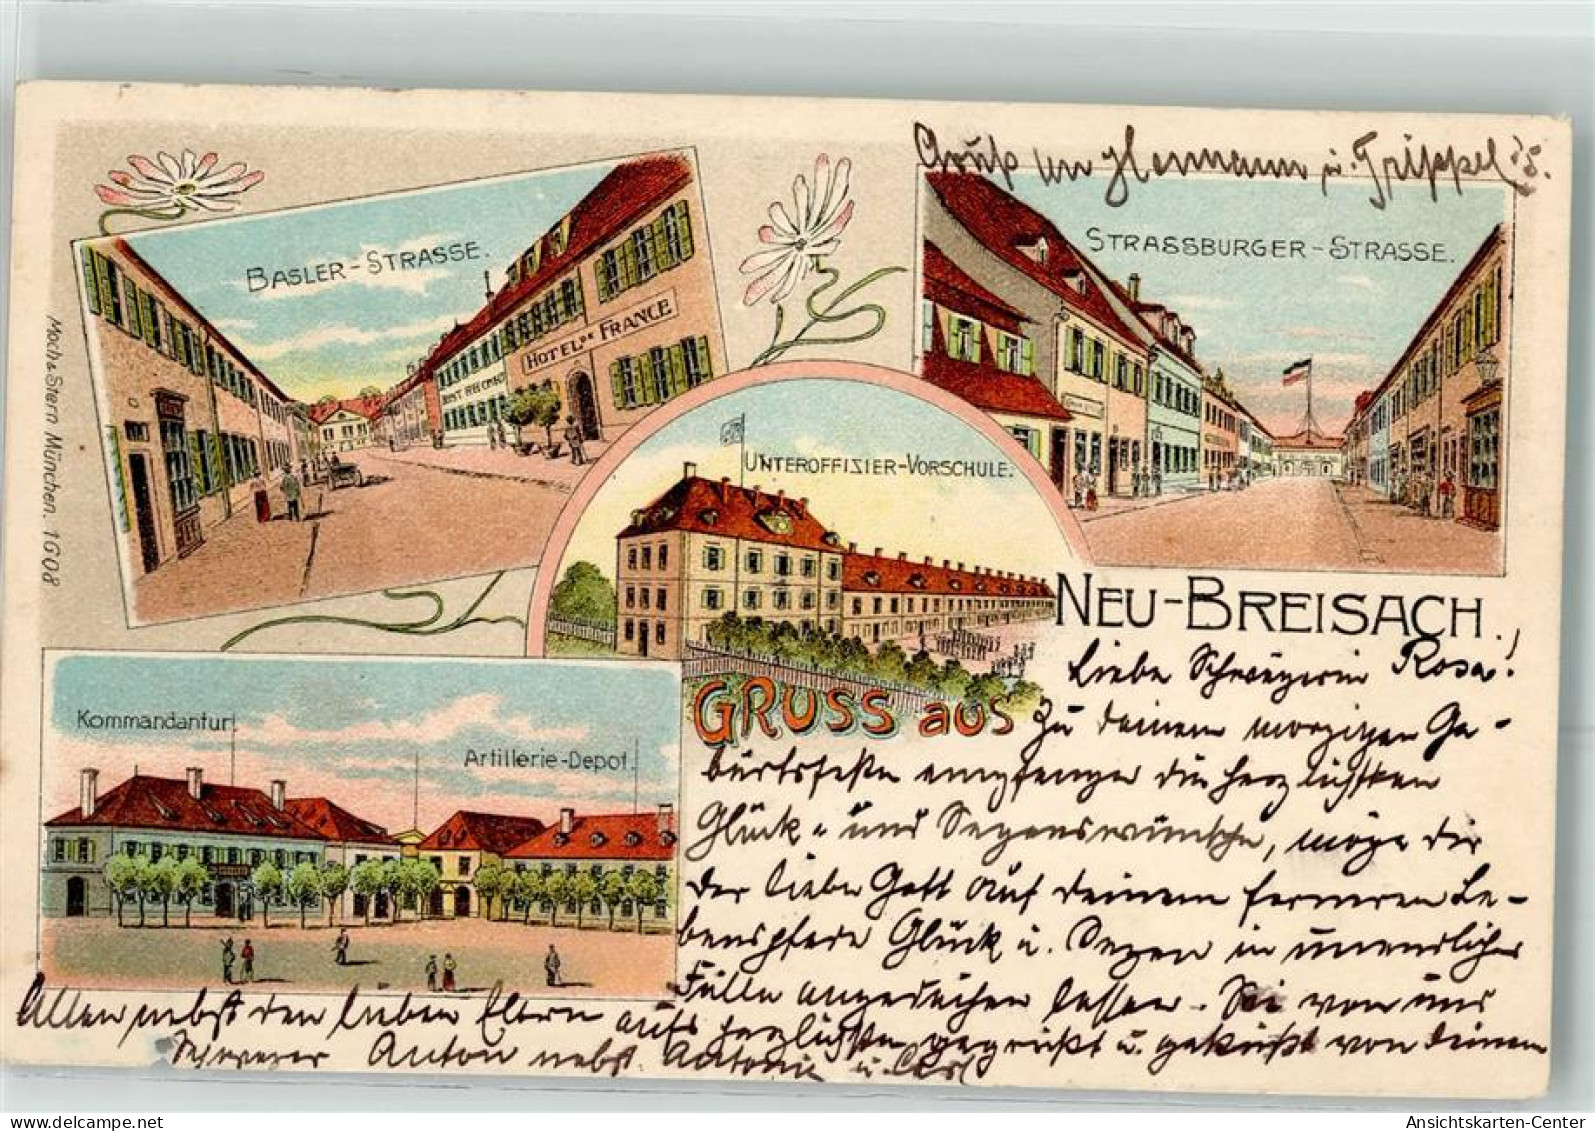 Gruß an Hermann u. Trippel's.
BASLER-STRASSE.
STRASSBURGER-STRASSE.
HOTEL DE FRANCE
UNTEROFFIZIER-VORSCHULE.
Moch & Stern München. 1608
NEU-BREISACH.
GRUSS aus
Kommandantur.
Artillerie-Depot.
Liebe Schwägerin Rosa!
Zu deinem morgigen Ge-
burtsfeste empfange die herzlichsten
Glück- und Segenswünsche, möge dir
der liebe Gott auf deinem ferneren Le-
benspfade Glück u. Segen in unendlicher
Fülle angedeihen lassen. Sei von uns
Allen nebst den lieben Eltern aufs herzlichste gegrüßt u. geküßt von deinem
Schwager Anton nebst Antonie u. Carl
AnsichtsKarten-Center
www.ansichtskartenversand.com